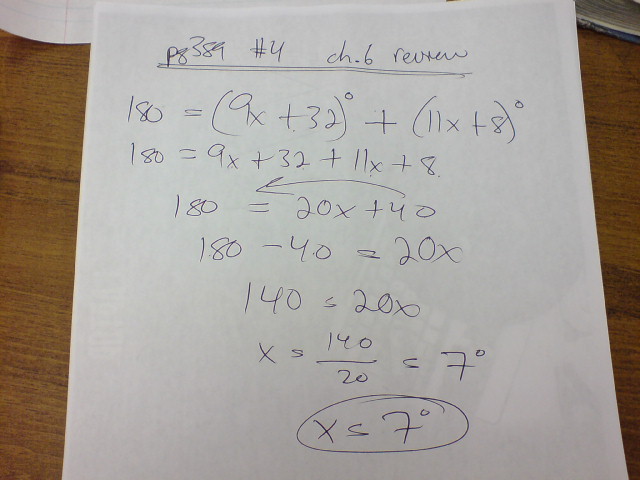 pg 389 #4 ch.6 review
180 = (9x + 32)° + (11x + 8)°
180 = 9x + 32 + 11x + 8
180 = 20x + 40
180 - 40 = 20x
140 = 20x
x = 140/20 = 7°
x = 7°